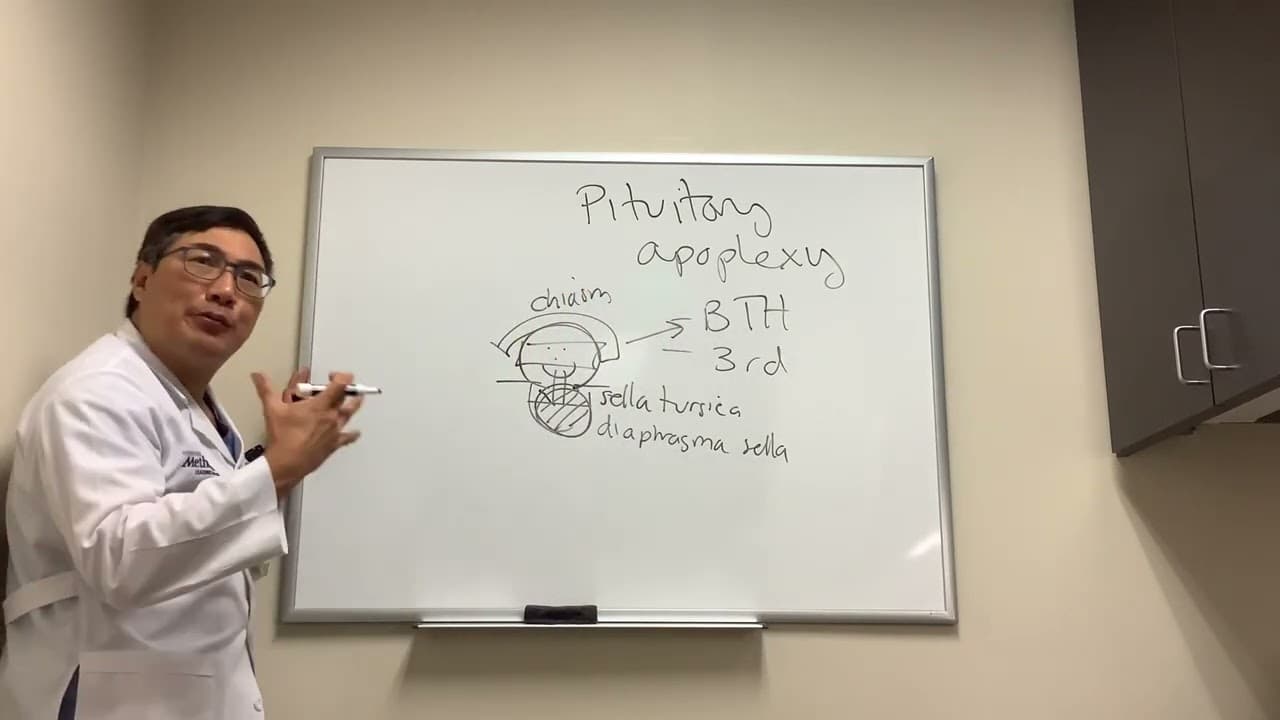 Pituitary
apoplexy
chiasm
BTH
3rd
sella tursica
diaphragma sella
Meth